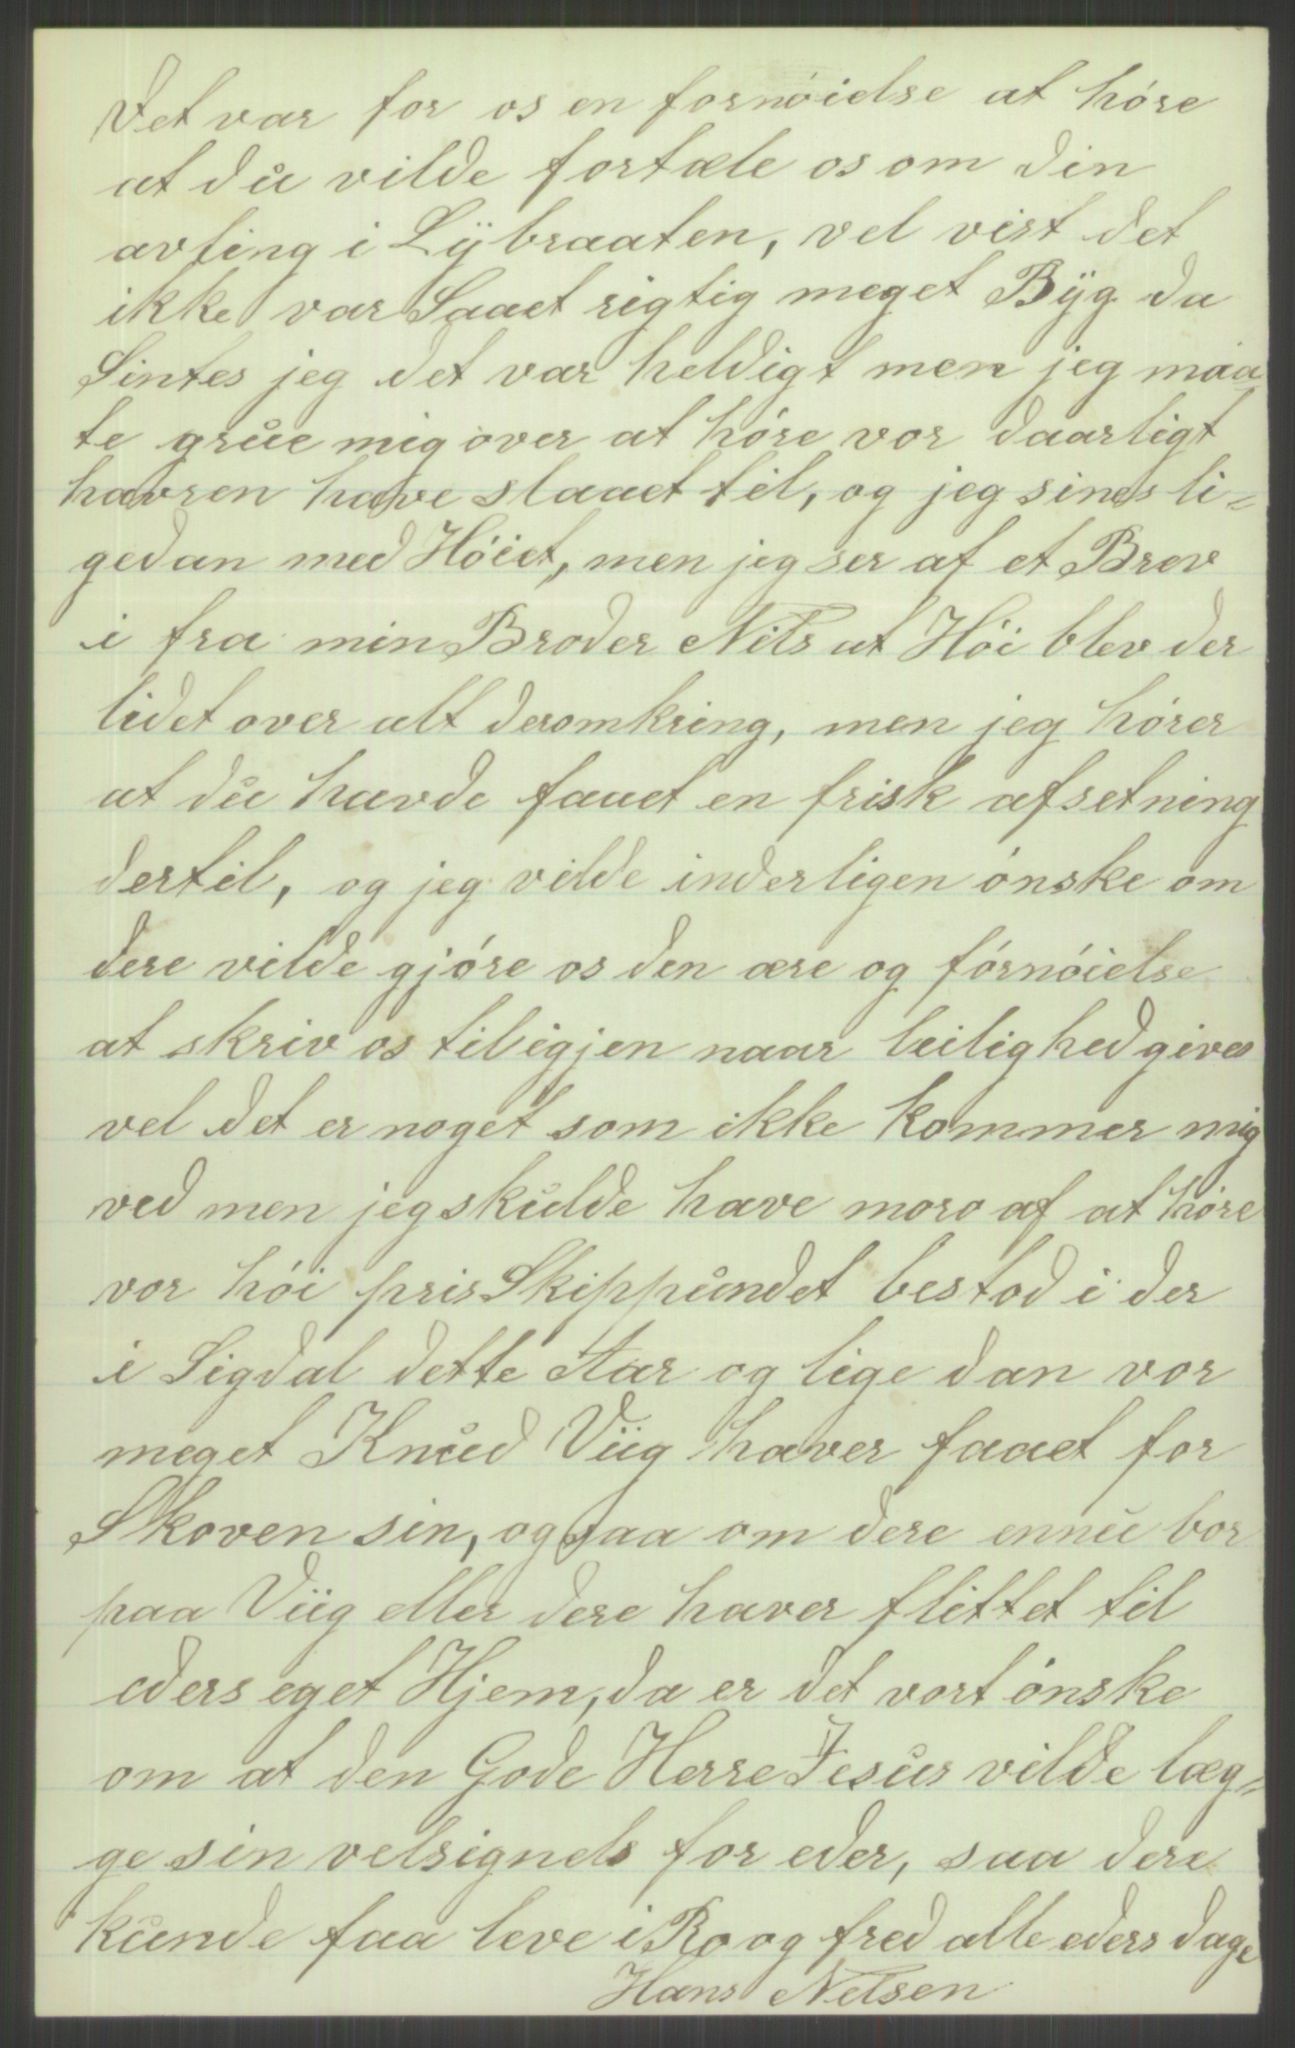 Det var for os en fornóielse at hóre
at du vilde fortæle os om din
avling i Lÿbraaten, vel vist det
ikke var Saaet rigtig meget Bÿg da
Sintes jeg det var heldigt men jeg maa-
te grue mig over at hóre vor daarligt
havren have slaaet til, og jeg sines li-
gedan med Hóiet, men jeg ser af et Brev
i fra min Broder Nils at Hói blev der
lidet over alt deromkring, men jeg hórer
at du havde faaet en frisk afsetning
dertil, og jeg vilde inderligen ónske om
dere vilde gjóre os den ære og fórnóielse
at skriv os til igjen naar leilighed gives
vel det er noget som ikke kommer mig
ved men jeg skulde have moro af at hóre
vor hói pris Skippundet bestod i der
i Sigdal dette Aar og lige dan vor
meget Knud Viig haver faaet for
Skoven sin, og saa om dere ennu bor
paa Viig eller dere haver flittet til
eders eget Hjem, da er det vort ónske
om at den Gode Herre Jesus vilde læg-
ge sin velsignels for eder, saa dere
kunde faa leve i Ro og fred alle eders dage
Hans Nelsen